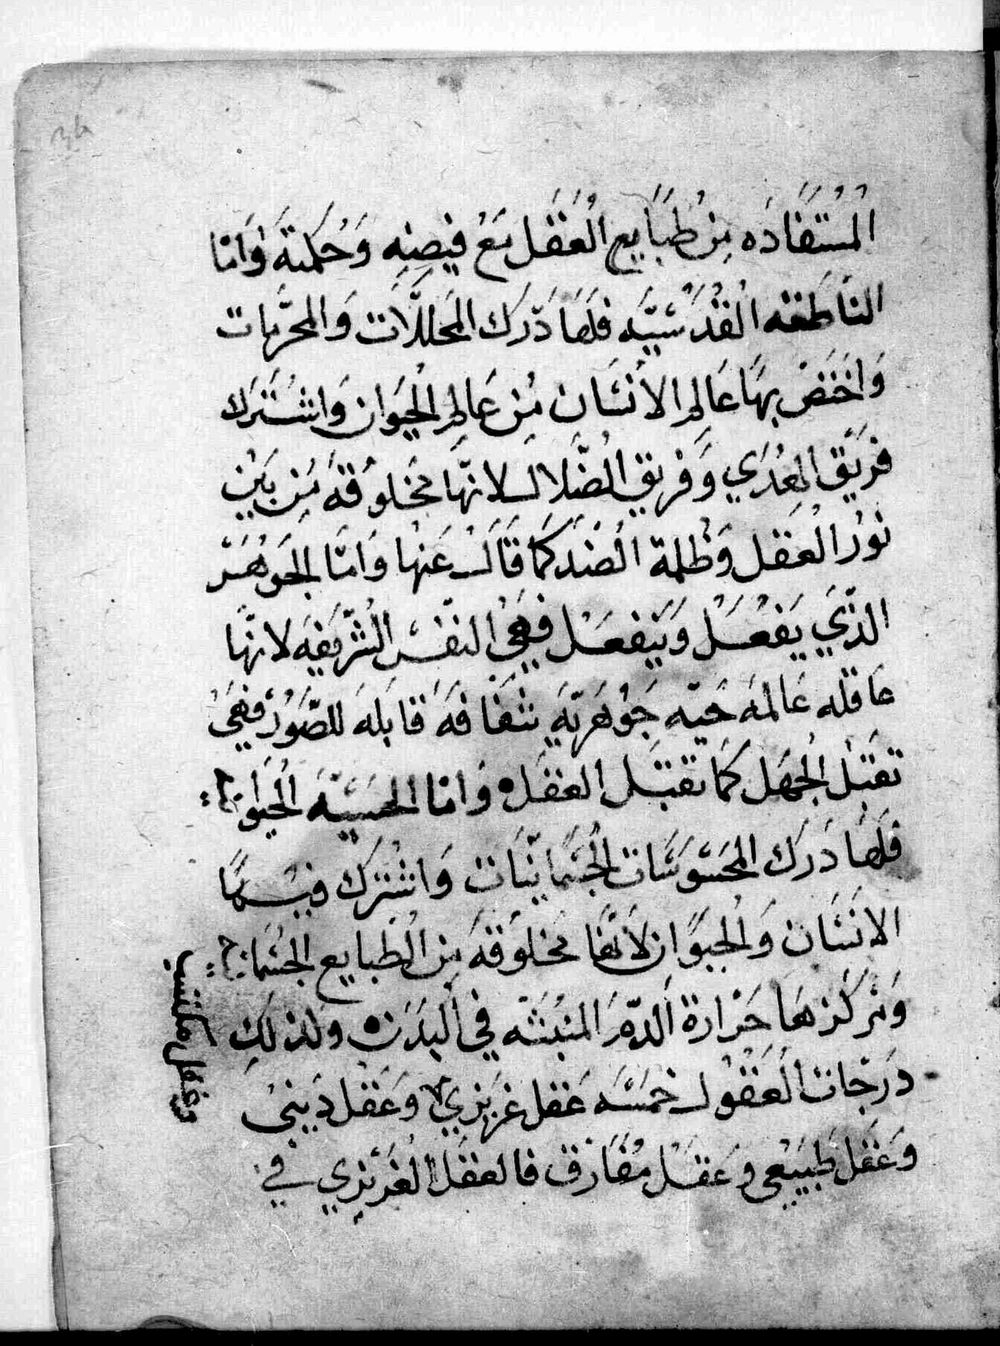 المُسْتَفَادَه مِنْ طَبَايع العَقل مَعَ فيضِهِ وَحُكمَتهَ وَامّا
النَاطقه القُدسيَّه فَلَها دَرك المَحللَّات وَالمحرَّمات
وَاختصَ بهَا عَالم الانسَان مِن عَالم الحيَوان وَاشتَرك
فريَق الهُدَي وَفريق الضّلال لانهَّا مخلوُقه مَن بَيْن
نوُر العَقل وَظُلمة الضدّ كما قال عَنها وَامّا الجَوهَر
الذّيَ يفعَل وَينفعَل فهَي النفسْ الشّرَيفه لانهَّا
عَاقله عَالمهَ حَيّه جَوْهَريّهَ شفافهَ قابلهَ للصّوَرُ فهيَ
تقبَل الجَهل كمَا تقبَل العقل ٥ وَامّا الحسيّهَ الحَيوانيه
فلَهَا دَرك المحسوسَات الجسمانيّات وَاشترَك فيهمَا
الانسَان وَالحيوَان لانها مخلوقه مِن الطبايع الجسمانيه
وَمركزهَا حَرارة الدّم المنبثه في البدَن ٥ ولذلك
دَرجَات العقول خمسَه عَقل غريزي وعَقل دَيني
وعقل مكتسب
وَعقل طبيعي وعَقل مفَارق فالعقل الغَريزي في